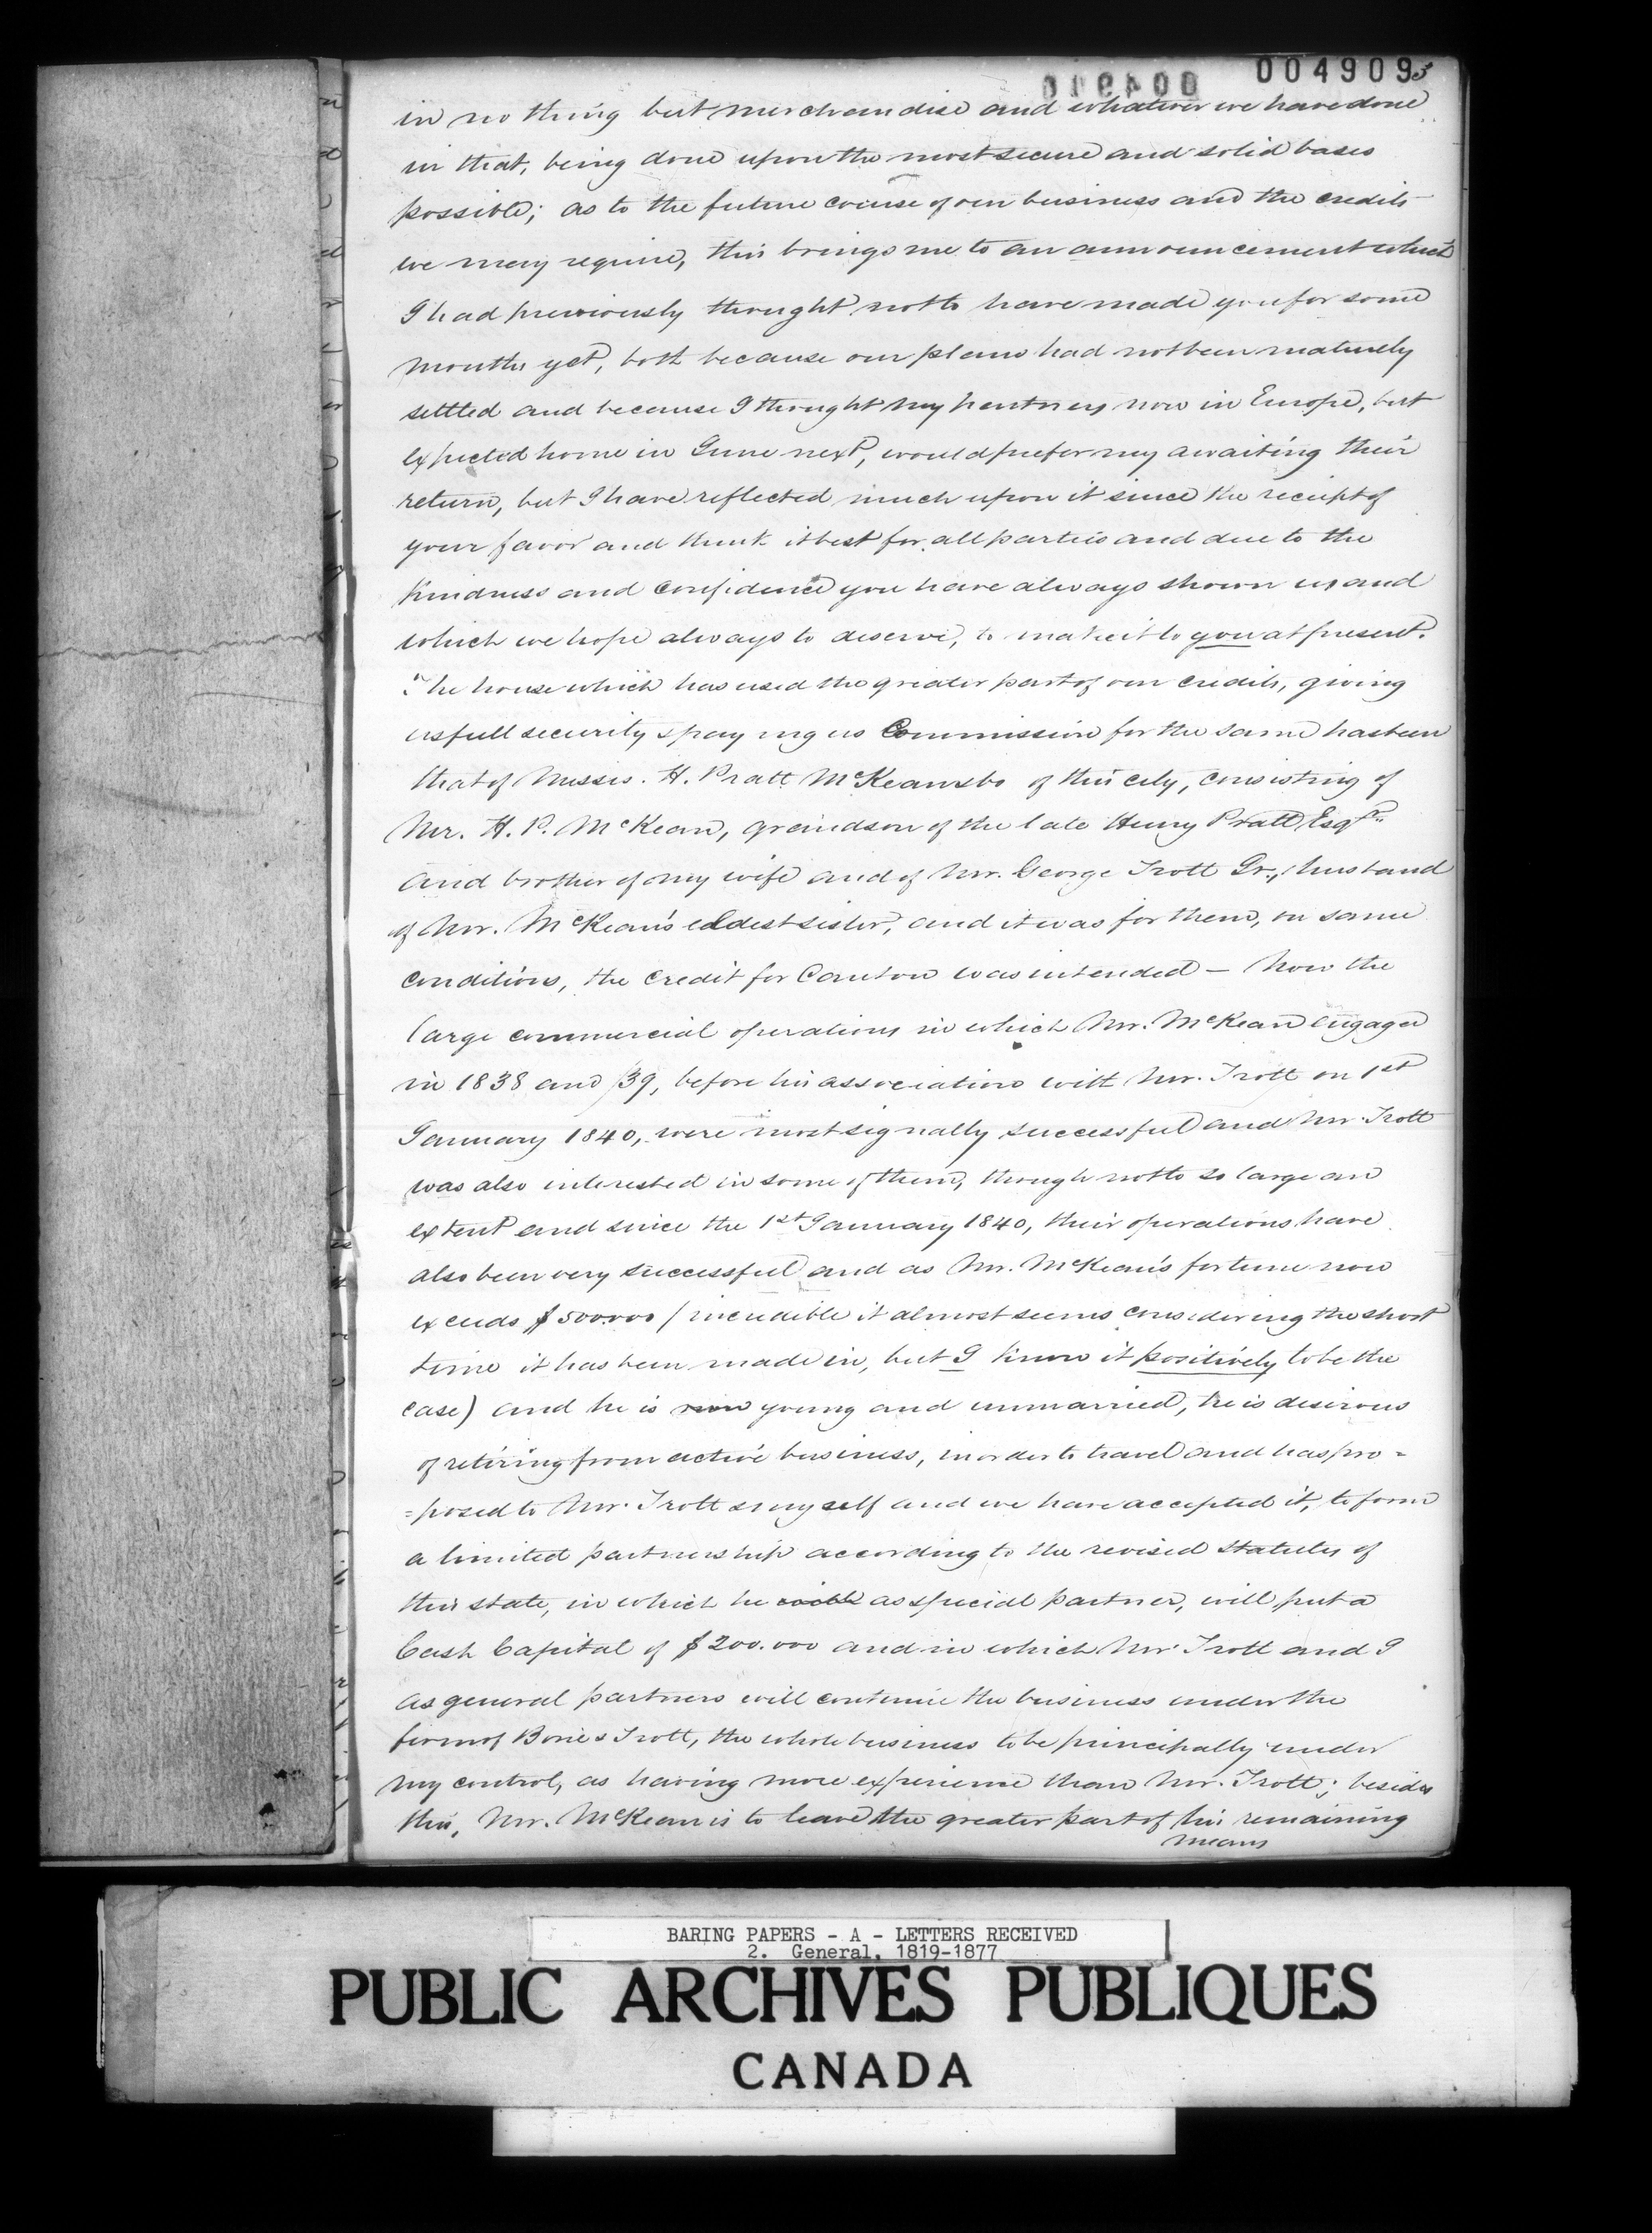 004909
3
004910
in nothing but merchandise and whatever we have done
in that, being done upon the most secure and solid bases
possible; as to the future course of our business and the credits
we may require, this brings me to an announcement which
I had previously thought not to have made you for some
months yet, both because our plans had not been maturely
settled and because I thought my partners now in Europe, but
expected home in June next, would prefer my awaiting their
return, but I have reflected much upon it since the receipt of
your favor and think it best for all parties and due to the
kindness and confidence you have always shown us and
which we hope always to deserve, to make it to you at present.
The house which has used the greater part of our credits, giving
us full security & paying us Commission for the same has been
that of Messrs. H. Pratt McKean & Co of this city, consisting of
Mr. H. P. McKean, grandson of the late Henry Pratt Esqr.
and brother of my wife and of Mr. George Trott Jr., husband
of Mr. McKean's eldest sister, and it was for them, on same
conditions, the credit for Canton was intended — Now the
large commercial operations in which Mr. McKean engaged
in 1838 and /39, before his association with Mr. Trott on 1st
January 1840, were most signally successful and Mr. Trott
was also interested in some of them, though not to so large an
extent and since the 1st January 1840, their operations have
also been very successful and as Mr. McKean's fortune now
exceeds $500.000 / incredible it almost seems considering the short
time it has been made in, but I know it positively to be the
case) and he is now young and unmarried, he is desirous
of retiring from active business, in order to travel and has pro=
=posed to Mr. Trott & myself and we have accepted it, to form
a limited partnership according to the revised statutes of
this state, in which he as special partner, will put a
Cash Capital of $200.000 and in which Mr. Trott and I
as general partners will continue the business under the
firm of Borie & Trott, the whole business to be principally under
my control, as having more experience than Mr. Trott; besides
this, Mr. McKean is to leave the greater part of his remaining
means
BARING PAPERS - A - LETTERS RECEIVED
2. General, 1819-1877
PUBLIC ARCHIVES PUBLIQUES
CANADA